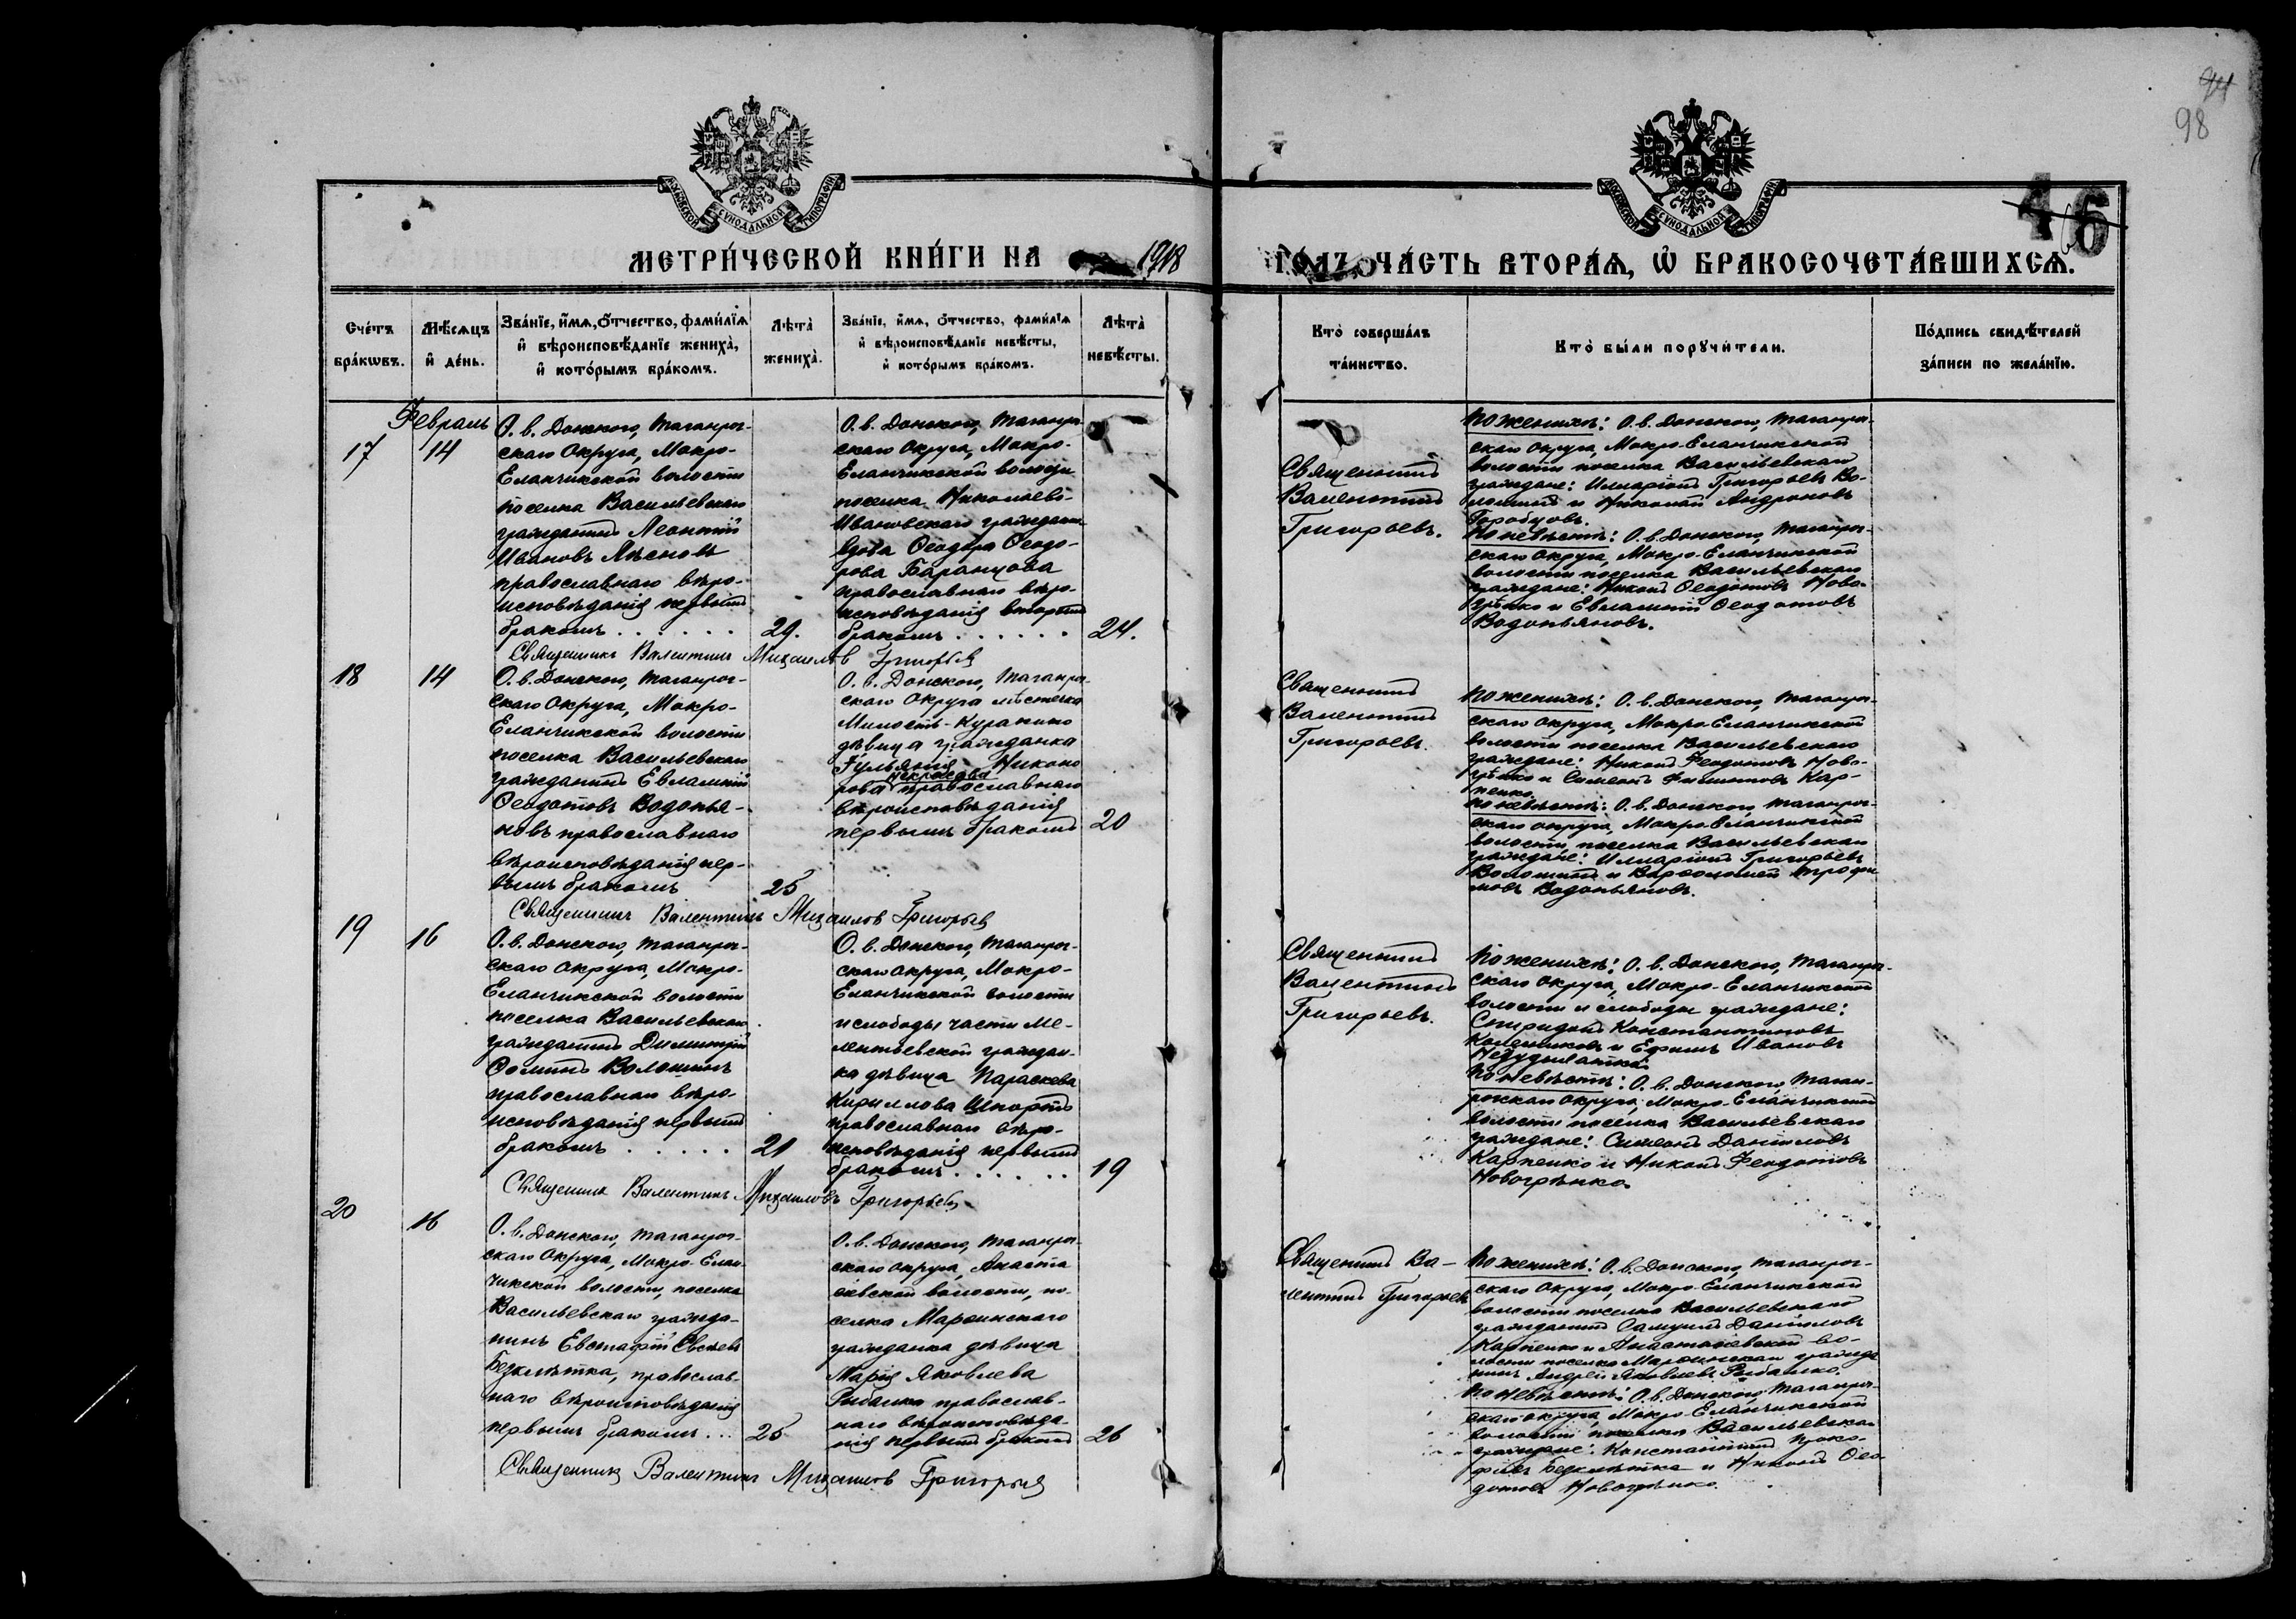 98
46
МОСКОВСКОЙ СѴНОДАЛЬНОЙ ТИПОГРАФІИ
МОСКОВСКОЙ СѴНОДАЛЬНОЙ ТИПОГРАФІИ
МЕТРИ́ЧЕСКОЙ КНИ́ГИ НА 1918
ГО́ДЪ, ЧА́СТЬ ВТОРА́Ѧ, Ѽ БРАКОСОЧЕТА́ВШИХСѦ.
Сче́тъ бра́кѡвъ.
Мѣ́сѧцъ и҆ де́нь.
Зва́нїе, и҆́мѧ, ѻ҆́тчество, фами́лїѧ и҆ вѣроисповѣ́данїе жениха̀, и҆ кото́рымъ бра́комъ.
Лѣта̀ жениха̀.
Зва́нїе, и҆́мѧ, ѻ҆́тчество, фами́лїѧ и҆ вѣроисповѣ́данїе невѣ́сты, и҆ кото́рымъ бра́комъ.
Лѣта̀ невѣ́сты.
Кто̀ соверша́лъ та́инство.
Кто̀ бы́ли порꙋчи́тели.
По́дпись свидѣ́телей за́писи по жела́нїю.
Февраль
17
14
О. в. Донского, Таганрог-
скаго Округа, Мокро-
Еланчикской волости
поселка Васильевскаго
гражданинъ Леонтій
Ивановъ Лѣсновъ
православнаго вѣро-
исповѣданія первымъ
бракомъ . . . . . .
29.
О. в. Донского, Таганро-
скаго Округа, Мокро-
Еланчикской волости
поселка Николаево-
Ивановскаго гражданка
вдова Ѳеодора Ѳеодо-
рова Баранцова
православнаго вѣро-
исповѣданія вторымъ
бракомъ . . . . . .
24.
Священникъ
Валентинъ
Григорьевъ.
По женихѣ: О. в. Донского, Таганрог-
скаго Округа, Мокро-Еланчикской
волости поселка Васильевскаго
граждане: Илларіонъ Григорьевъ Во-
лошинъ и Николай Андроновъ
Горобцовъ.
По невѣстѣ: О. в. Донского, Таганрог-
скаго Округа, Мокро-Еланчикской
волости поселка Васильевскаго
граждане: Никонъ Ѳеодотовъ Ново-
грѣнко и Евлампій Ѳеодотовъ
Водопьяновъ.
Священникъ Валентинъ Михаиловъ Григорьевъ
18
14
О. в. Донского, Таганрог-
скаго Округа, Мокро-
Еланчикской волости
поселка Васильевскаго
гражданинъ Евлампій
Ѳеодотовъ Водопья-
новъ православнаго
вѣроисповѣданія пер-
вымъ бракомъ
25
О. в. Донского, Таганрог-
скаго Округа мѣстечка
Милость-Куракино
дѣвица гражданка
Іуліянія Никоно
Некрасова
рова православнаго
вѣроисповѣданія
первымъ бракомъ
20
Священникъ
Валентинъ
Григорьевъ.
По женихѣ: О. в. Донского, Таганрог-
скаго округа, Мокро-Еланчикской
волости поселка Васильевскаго
граждане: Никонъ Ѳеодотовъ Ново-
грѣнко и Симеонъ Кар-
пенко.
По невѣстѣ: О. в. Донского, Таганрог-
скаго округа, Мокро-Еланчикской
волости поселка Васильевскаго
граждане: Илларіонъ Григорьевъ
Волошинъ и Варѳоломей Трофи
мовъ Водопьяновъ.
Священникъ Валентинъ Михаиловъ Григорьевъ
19
16
О. в. Донского, Таганрог-
скаго округа, Мокро-
Еланчикской волости
поселка Васильевскаго
гражданинъ Димитрій
Ѳоминъ Волошинъ
православнаго вѣро-
исповѣданія первымъ
бракомъ . . . . .
21
О. в. Донского, Таганрог-
скаго округа, Мокро-
Еланчикской волости
и слободы части Ме-
лентьевской граждан-
ка дѣвица Параскева
Кириллова Шпортъ
православнаго вѣро-
исповѣданія первымъ
бракомъ . . . . . .
19
Священникъ
Валентинъ
Григорьевъ.
По женихѣ: О. в. Донского, Таганрог-
скаго округа, Мокро-Еланчикской
волости и слободы граждане:
Спиридонъ Константиновъ
Колесниковъ и Ефимъ Ивановъ
По невѣстѣ: О. в. Донского, Таган-
рогскаго округа, Мокро-Еланчикской
волости поселка Васильевскаго
граждане: Симеонъ Даніиловъ
Карпенко и Никонъ Ѳеодотовъ
Новогрѣнко.
Священникъ Валентинъ Михаиловъ Григорьевъ
20
16
О. в. Донского, Таганрог-
скаго Округа, Мокро-Елан-
чикской волости, поселка
Васильевскаго гражда-
нинъ Евстафій
Безклѣтка, православ-
наго вѣроисповѣданія
первымъ бракомъ . . .
25
О. в. Донского, Таганрог-
скаго округа, Анаста
сіевской волости, по-
селка Марѳинскаго
гражданка дѣвица
Марія Яковлева
Рибалко православ-
наго вѣроисповѣда-
нія первымъ бракомъ
26
Священникъ Ва-
лентинъ Григорьевъ
По женихѣ: О. в. Донского, Таганрог-
скаго Округа, Мокро-Еланчикской
волости поселка Васильевскаго
гражданинъ Самуилъ Даніиловъ
Карпенко и Анастасіевской во-
лости поселка Марѳинскаго гражда
нинъ Андрей Яковлевъ Рибалко.
По невѣстѣ: О. в. Донского, Таганрог-
скаго округа, Мокро-Еланчикской
волости поселка Васильевскаго
граждане: Константинъ Проко-
фьевъ Безклѣтка и Никонъ Ѳео-
дотовъ Новогрѣнко.
Священникъ Валентинъ Михаиловъ Григорьевъ